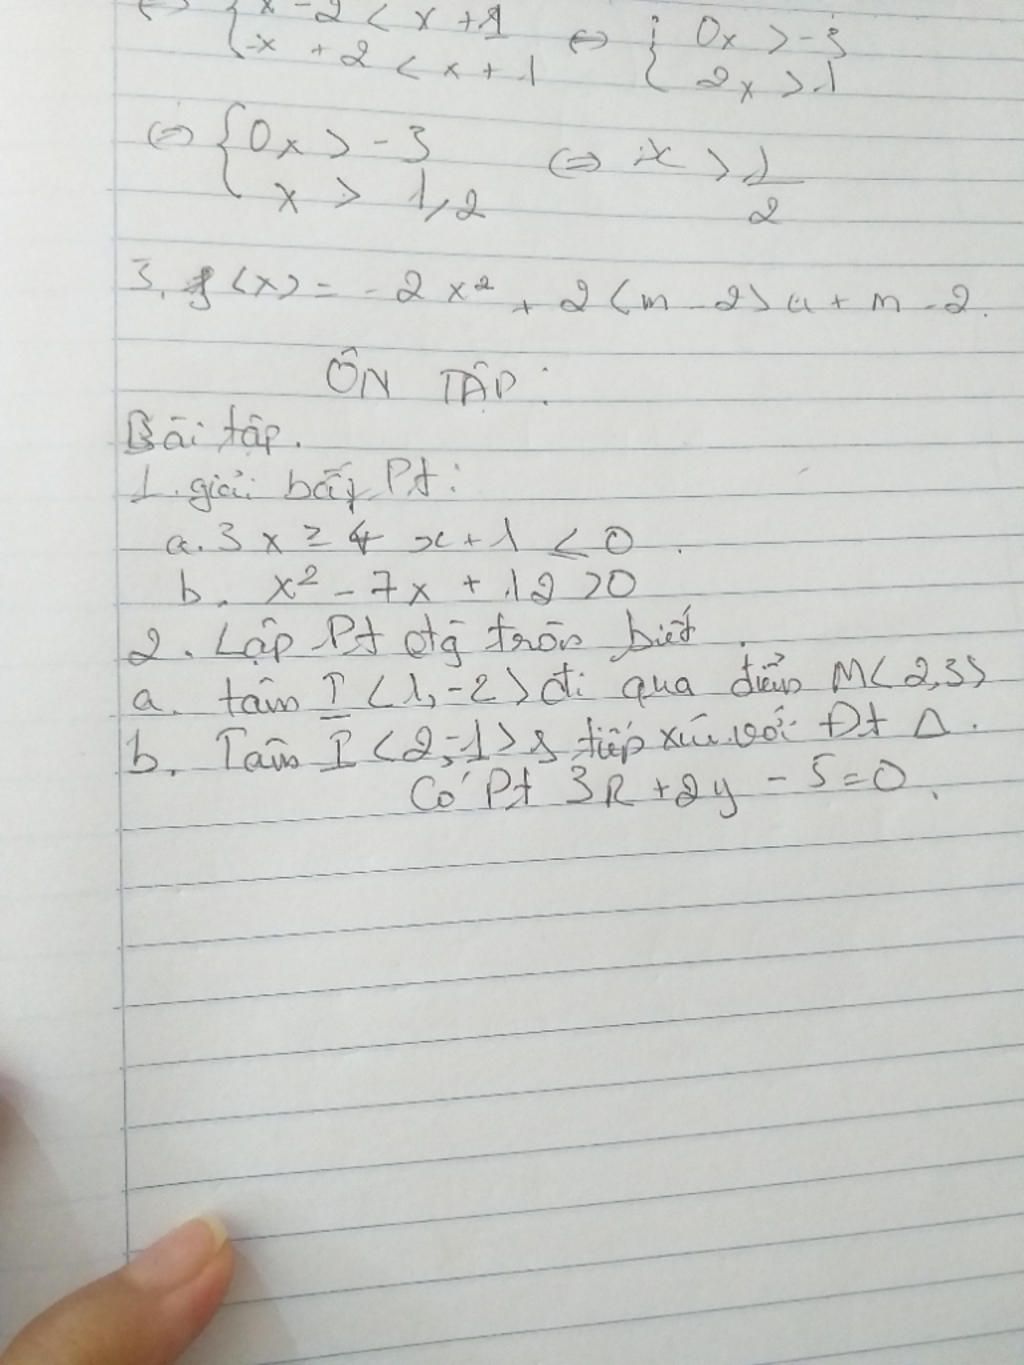 ⇔ { x - 2 < x + 1 ⇔ { 0x > -3
-x + 2 < x + 1 2x > 1
⇔ { 0x > -3 ⇔ x > 1/2
x > 1/2
3. f(x) = -2x² + 2(m - 2)x + m - 2.
ÔN TẬP:
Bài tập.
1. giải bất Pt:
a. 3x ≥ 4 x + 1 ≤ 0.
b. x² - 7x + 12 > 0
2. Lập Pt đtg tròn biết.
a. tâm I (1, -2) đi qua điểm M(2,3)
b. Tâm I (2, -1) & tiếp xúc với Đt Δ.
Có Pt 3x + 2y - 5 = 0.